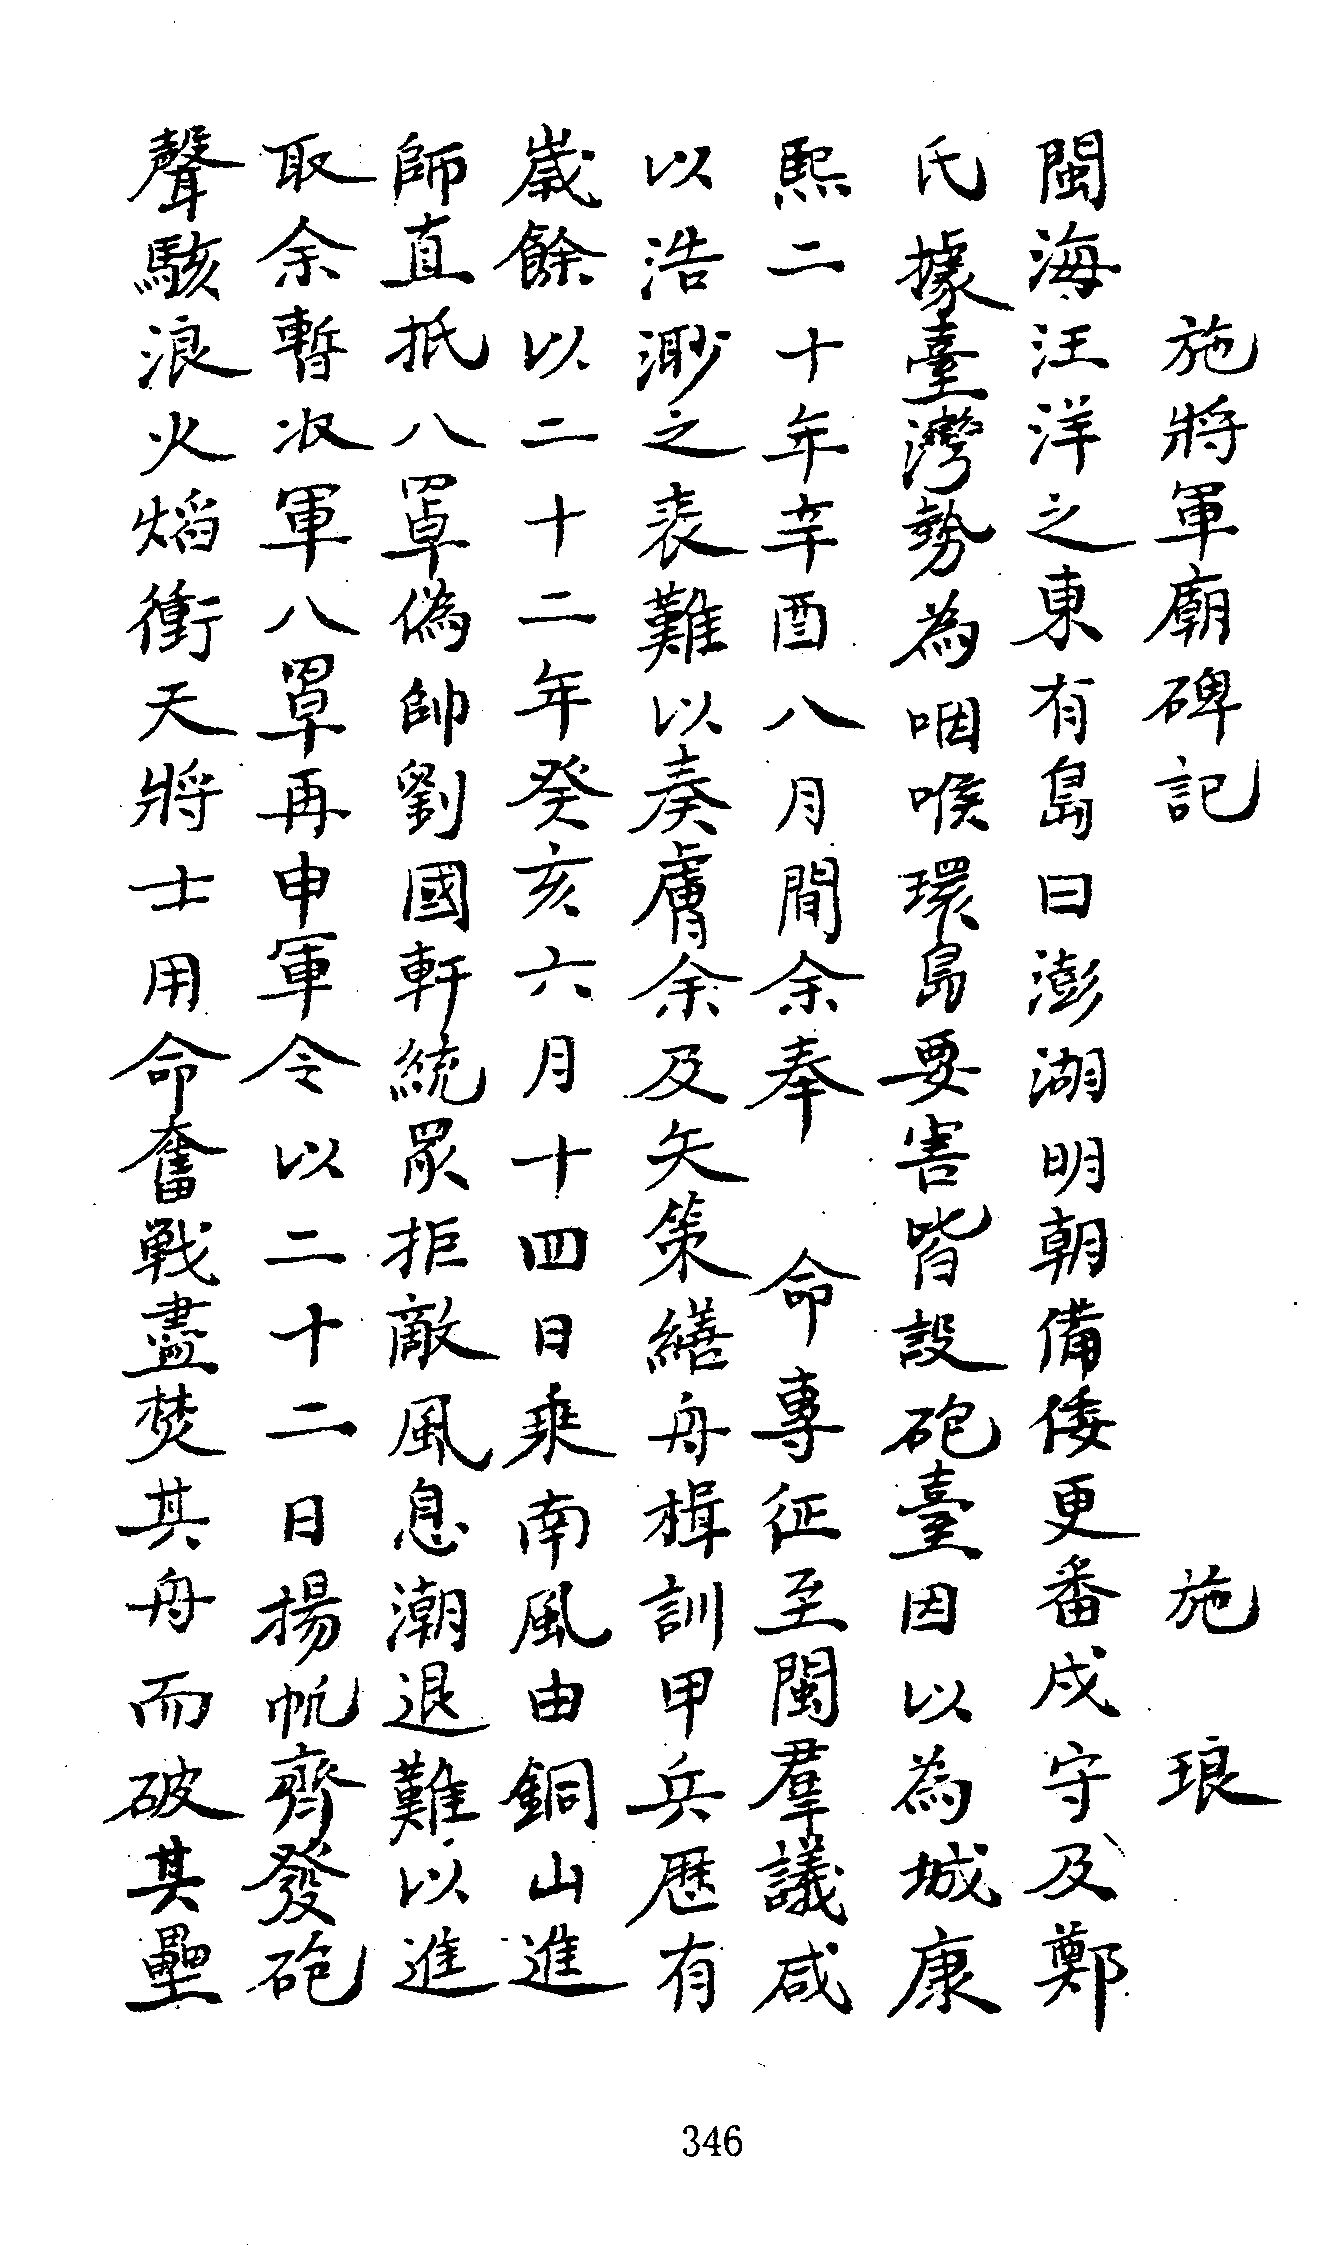 施將軍廟碑記　　施　琅
閩海汪洋之東有島曰澎湖明朝備倭更番戍守及鄭
氏據臺灣勢為咽喉環島要害皆設砲臺因以為城康
熙二十年辛酉八月間余奉　命專征至閩羣議咸
以浩渺之表難以奏膚余及矢策繕舟楫訓甲兵歷有
歲餘以二十二年癸亥六月十四日乘南風由銅山進
師直抵八罩偽帥劉國軒統眾拒敵風息潮退難以進
取余暫收軍八罩再申軍令以二十二日揚帆齊發砲
聲駭浪火焰衝天將士用命奮戰盡焚其舟而破其壘
346